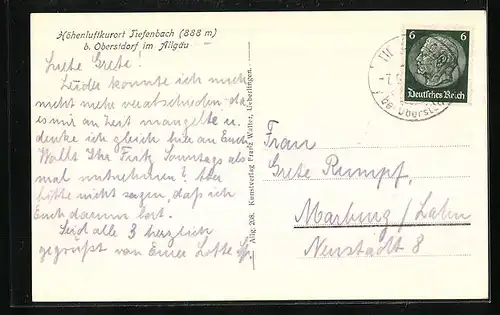 Höhenluftkurort Tiefenbach (888 m)
b. Oberstdorf im Allgäu
Liebe Grete!
Leider konnte ich mich
nicht mehr verabschieden da
es mir an Zeit mangelte u.
denke ich gleich hier an Euch.
Wollt Ihr Fritz Sonntags ab
mal mitnehmen? Aber
bitte nicht sagen, daß ich
Euch darum bat.
Seid alle 3 herzlich
gegrüßt von Eurer Lotte
Allg. 208. Kunstverlag Franz Walter, Ueberlingen.
6 6
Deutsches Reich
-7.
Frau
Grete Rumpf,
Marburg / Lahn
Neustadt 8